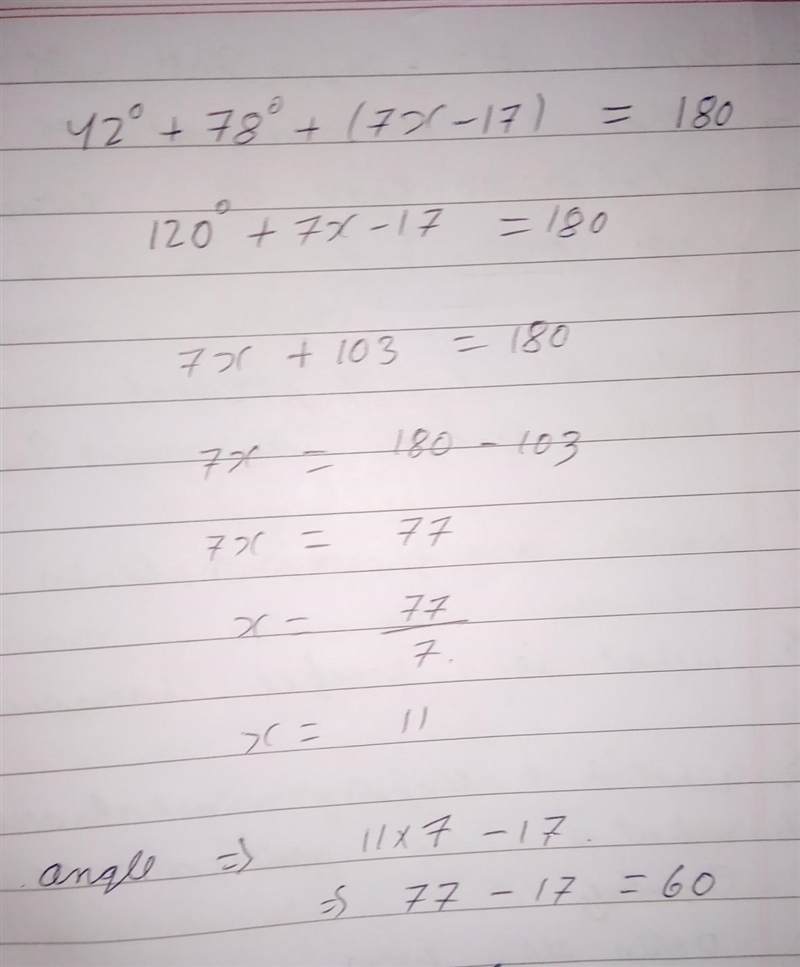 42° + 78° + (7x - 17) = 180
120° + 7x - 17 = 180
7x + 103 = 180
7x = 180 - 103
7x = 77
x = 77/7.
x = 11
angle ⇒ 11 × 7 - 17.
⇒ 77 - 17 = 60